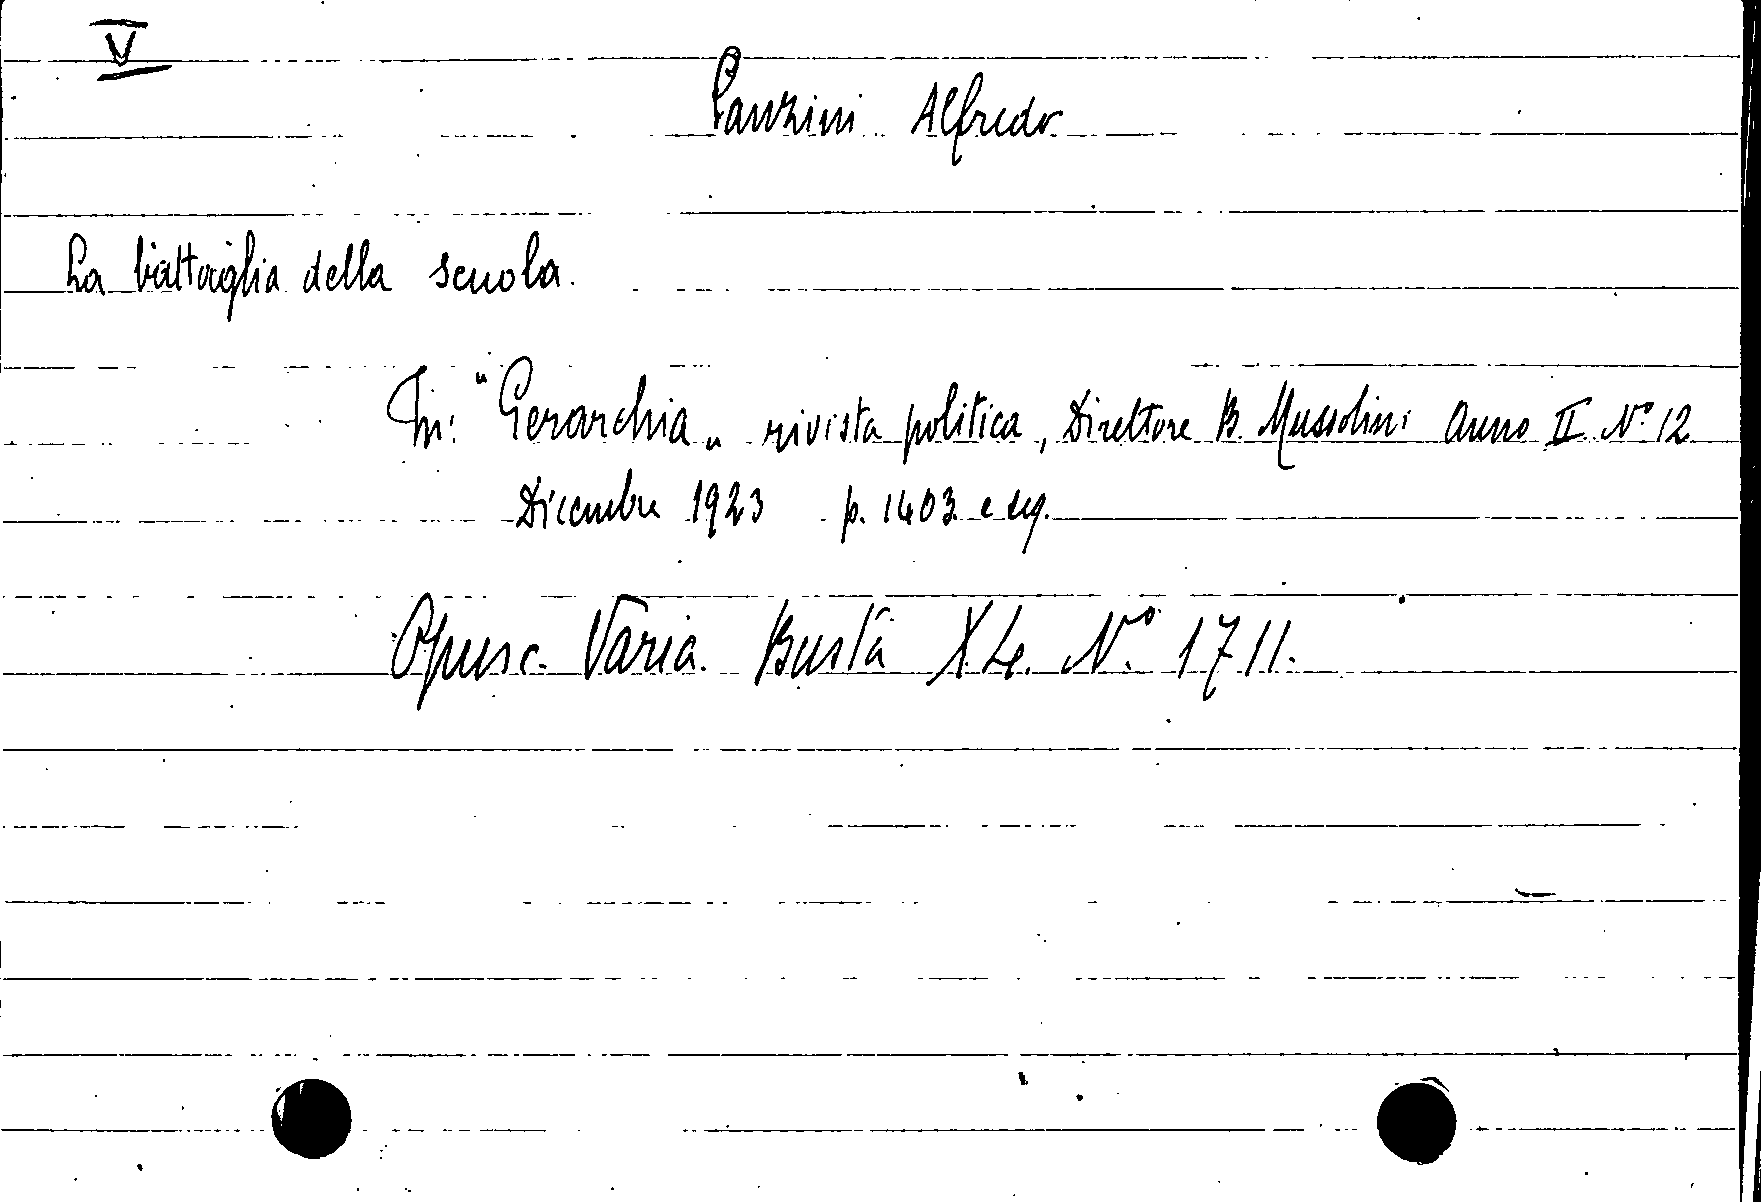 V
Panzini Alfredo
La battaglia della scuola.
In: "Gerarchia„ rivista politica, Direttore B. Mussolini Anno II N° 12
Dicembre 1923 p. 1403 e seg.
Opusc. Varia. Busta XL. N.° 1711.